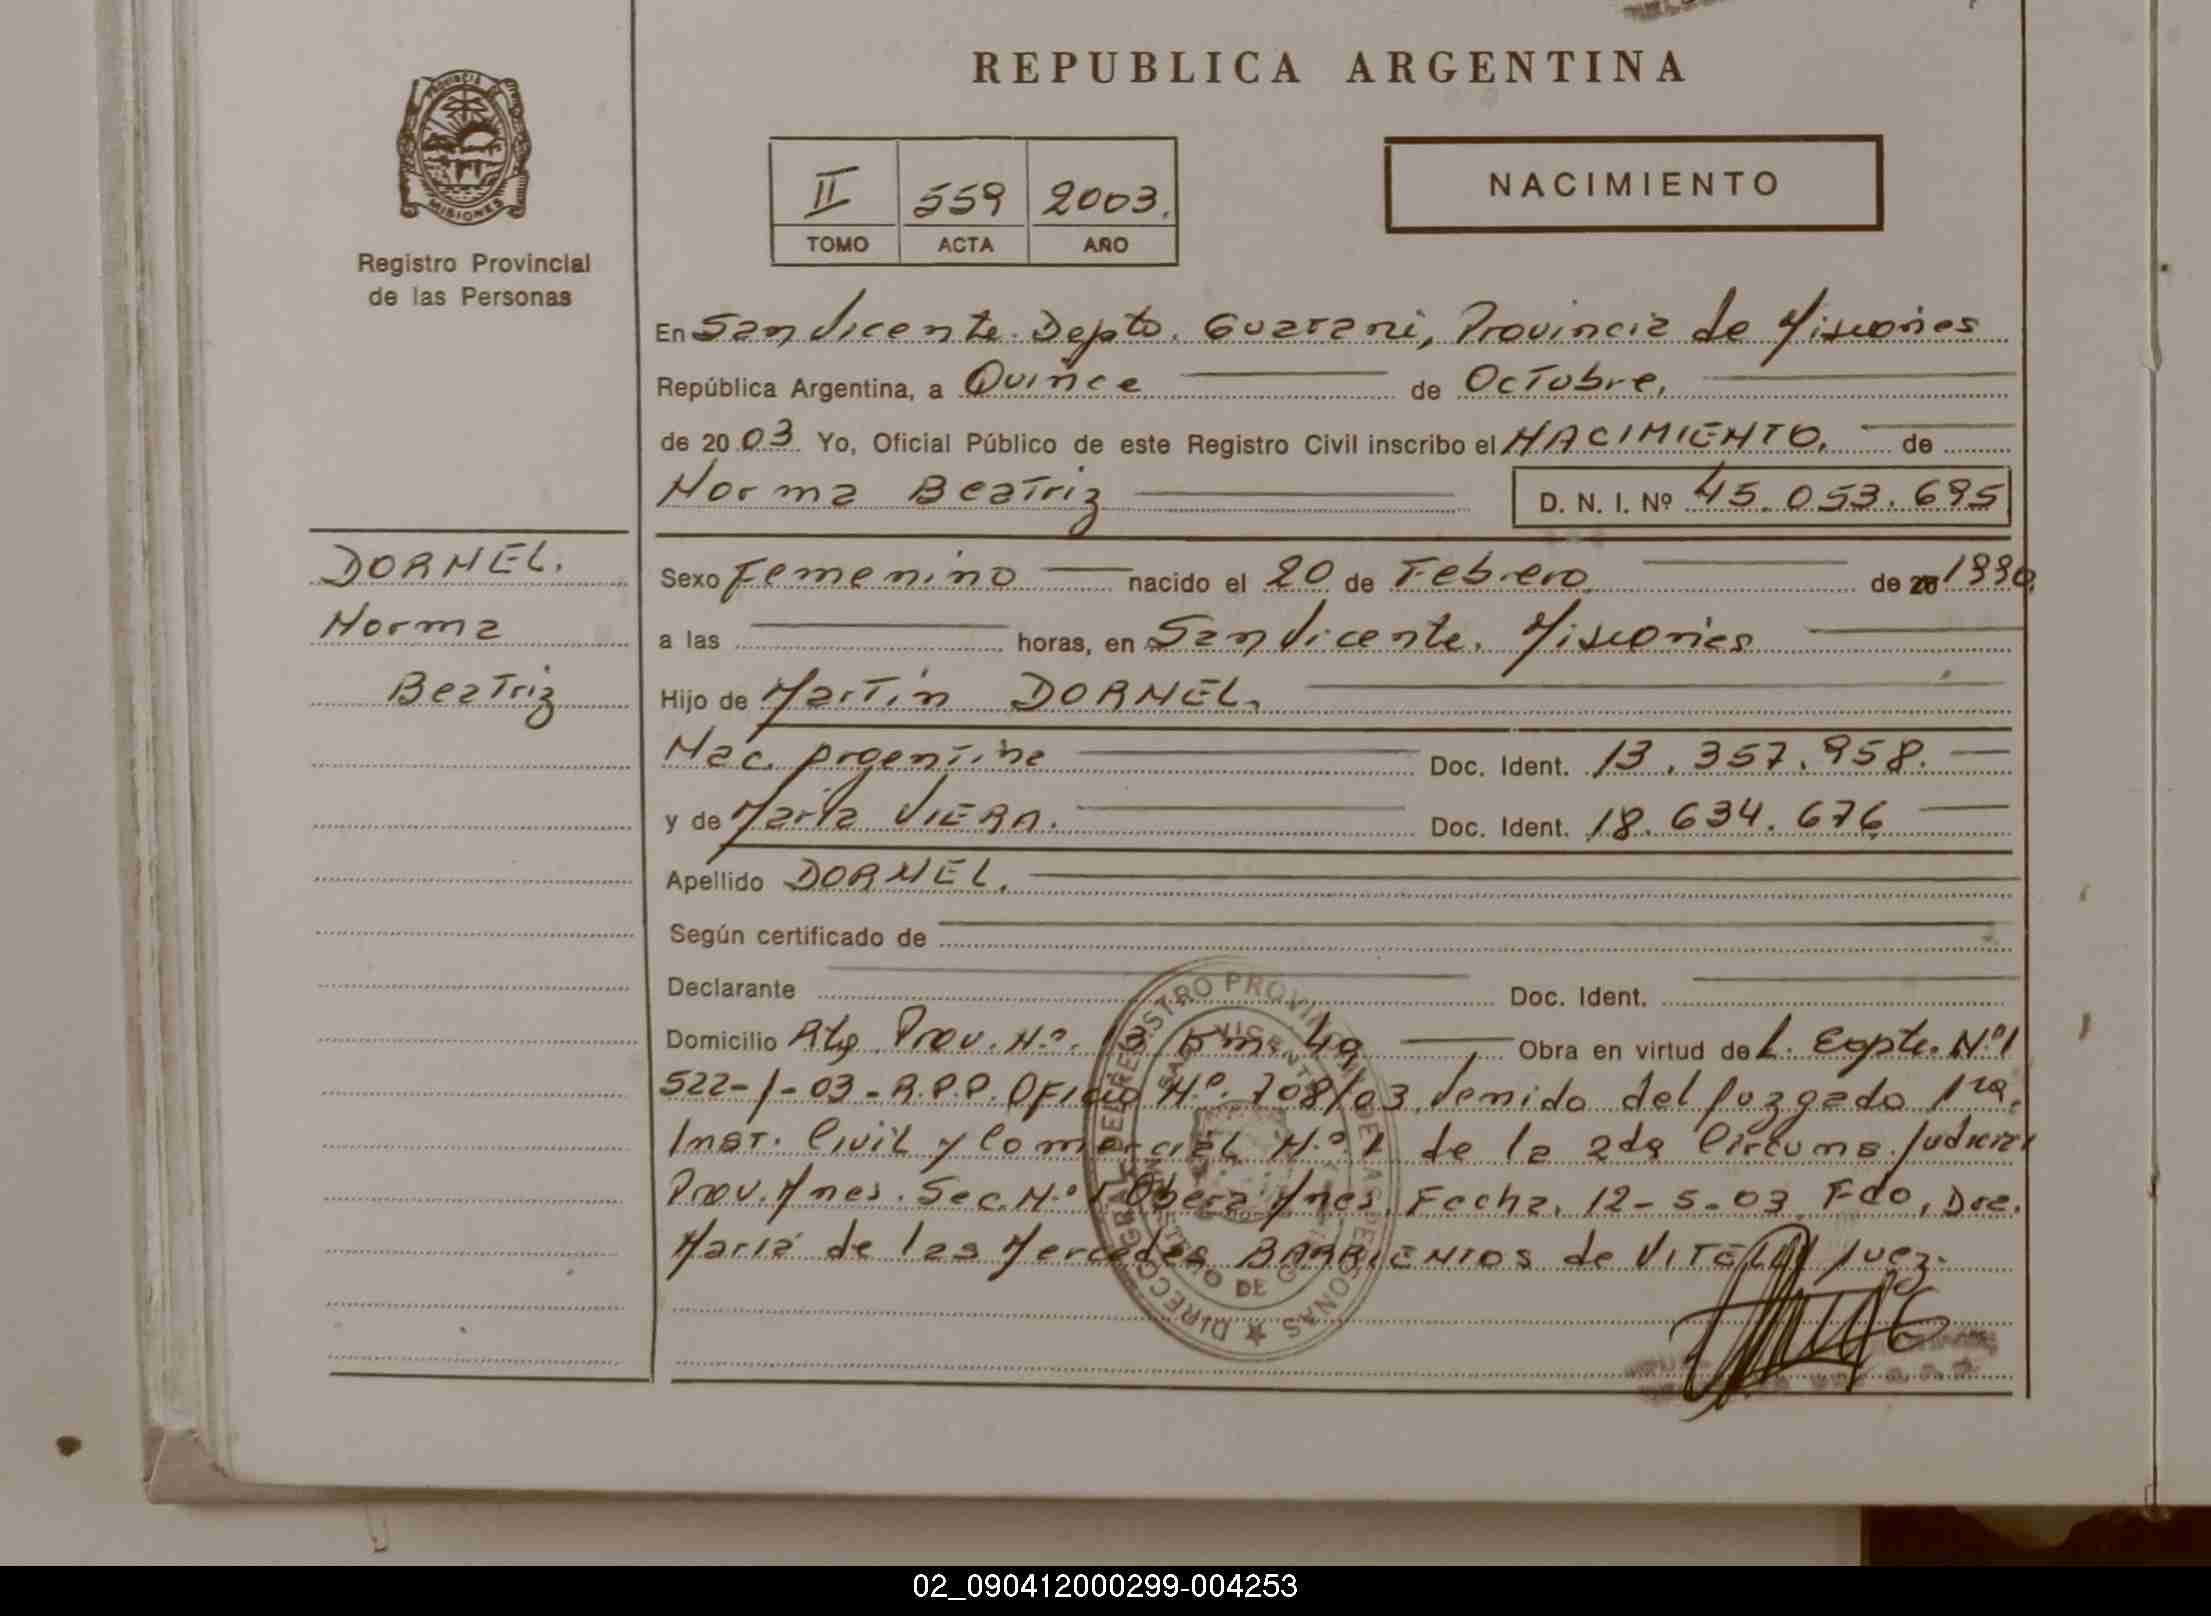 REPUBLICA ARGENTINA
PROVINCIA DE
MISIONES
Registro Provincial
de las Personas
II 559 2003.
TOMO ACTA AÑO
NACIMIENTO
En San Vicente. Depto. Guarani, Provincia de Misiones
República Argentina, a Quince de Octubre,
de 2003 Yo, Oficial Público de este Registro Civil inscribo el NACIMIENTO, de
Norma Beatriz D. N. I. Nº 45.053.695
DORNEL.
Norma
Beatriz
Sexo Femenino nacido el 20 de Febrero de 20 1990.
a las horas, en San Vicente. Misiones
Hijo de Martin DORNEL.
Nac. Argentina Doc. Ident. 13.357.958.
y de Maria VIERA. Doc. Ident. 18.634.676
Apellido DORNEL.
Según certificado de
Declarante Doc. Ident.
Domicilio Prov. N.º 13 Km. 40 Obra en virtud de Expte. Nº1
522-1-03-R.P.P. Oficio N.º 708/03. Venido del Juzgado 1ra.
Inst. Civil y Comercial N.º 1 de la 2da Circuns. Judicial
Prov. Mnes. Sec. N.º 1 Obera Mnes. Fecha, 12-5-03 Fdo, Dra.
Maria de las Mercedes BARRIENTOS de Juez.
02_090412000299-004253